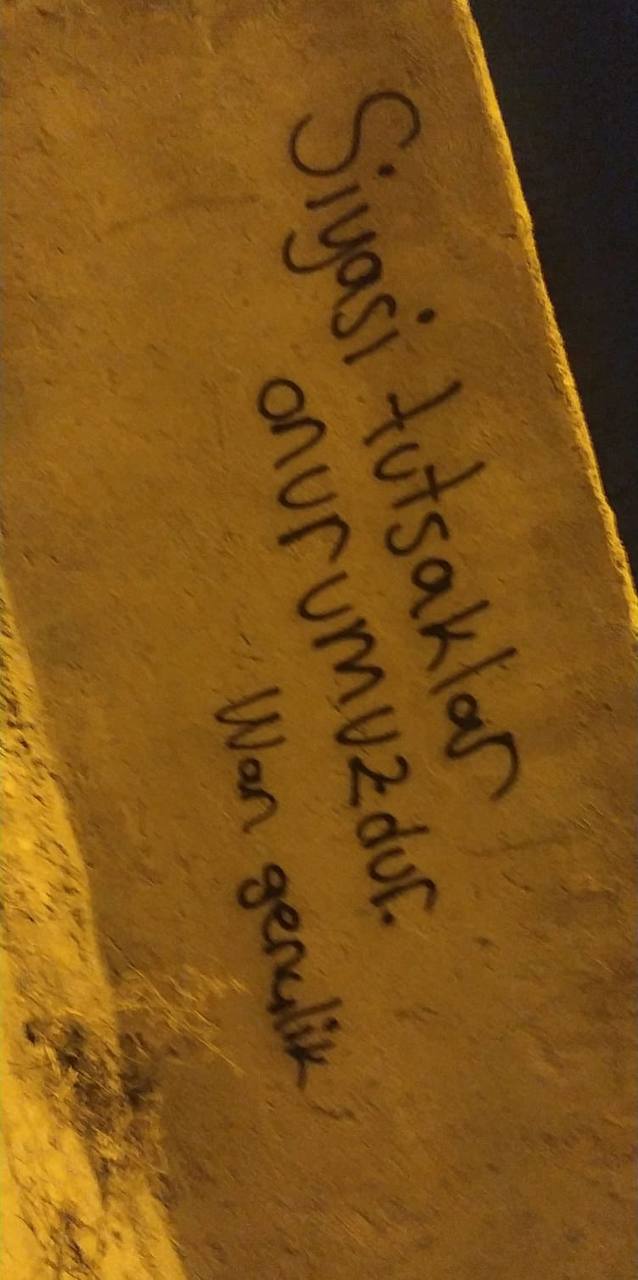 Siyasi tutsaklar
onurumuzdur.
Wan gençlik